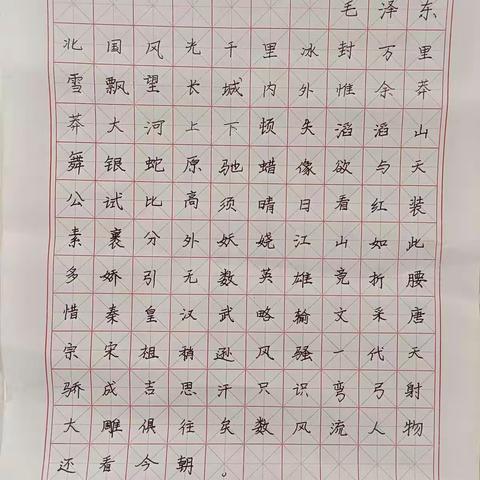 毛泽东
北国风光千里冰封万里
雪飘望长城内外惟余莽
莽大河上下顿失滔滔山
舞银蛇原驰蜡像欲与天
公试比高须晴日看红装
素裹分外妖娆江山如此
多娇引无数英雄竞折腰
惜秦皇汉武略输文采唐
宗宋祖稍逊风骚一代天
骄成吉思汗只识弯弓射
大雕俱往矣数风流人物
还看今朝。